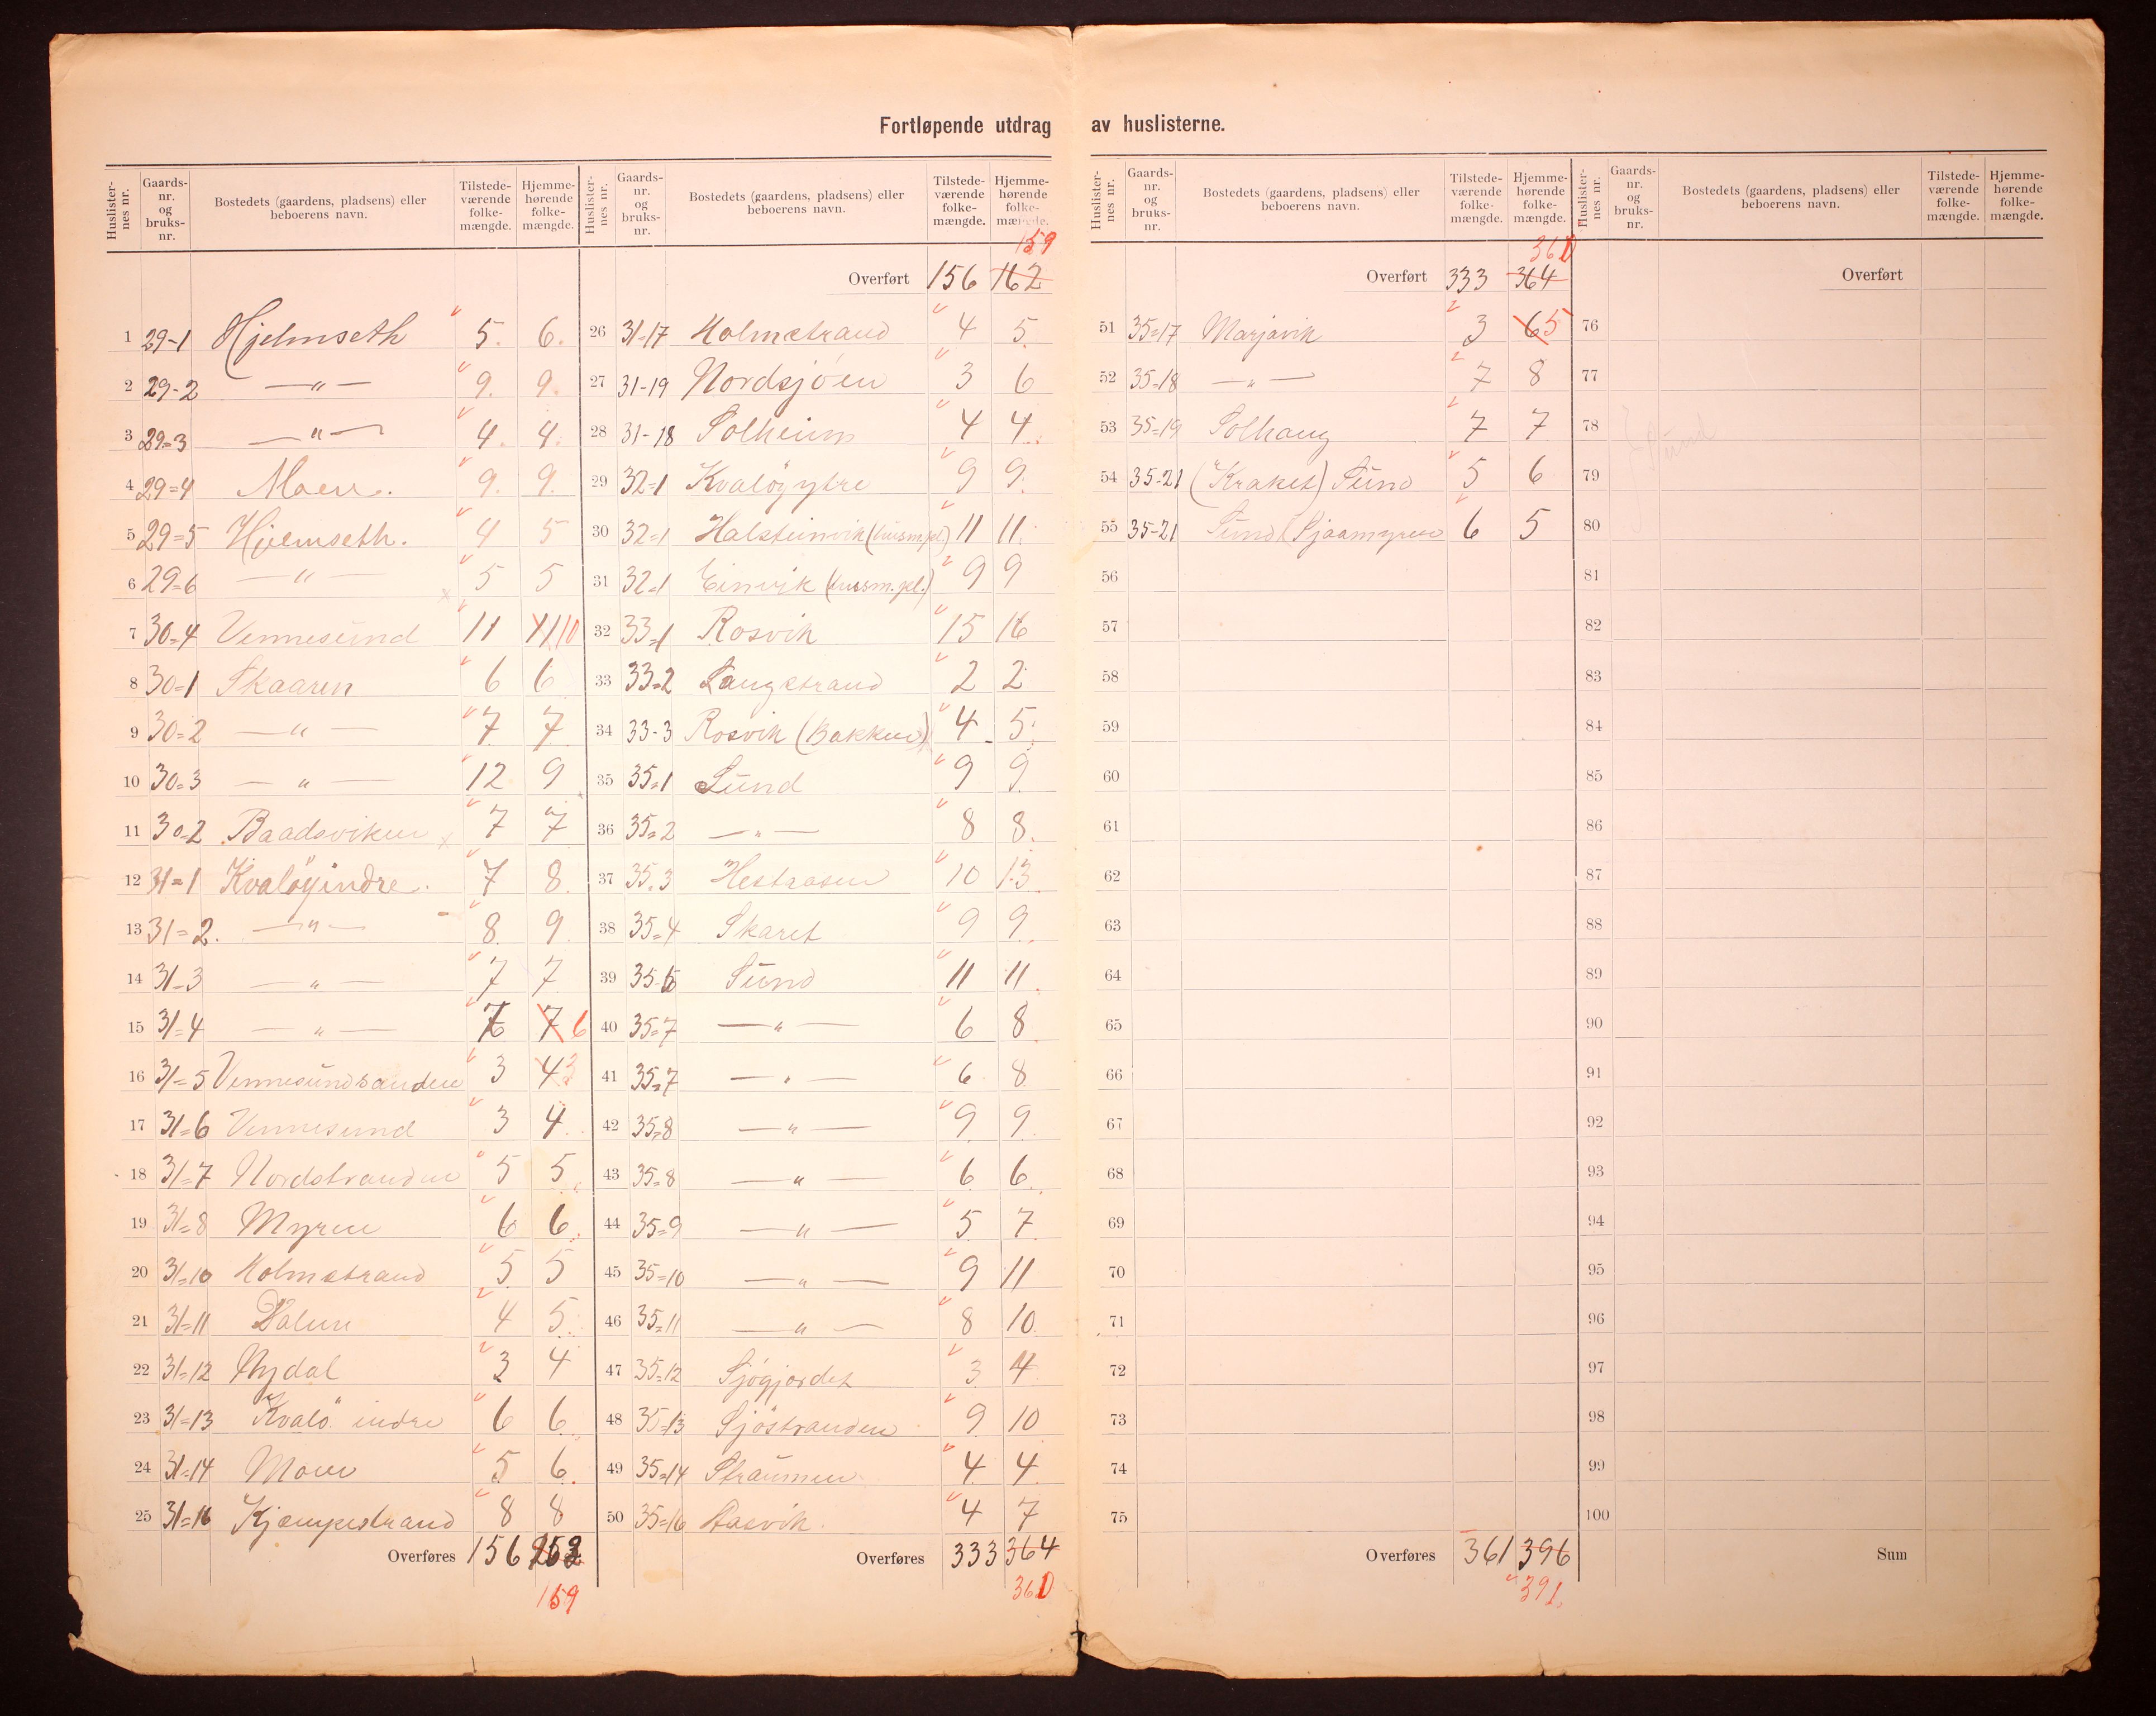 Fortløpende utdrag av huslisterne.
Huslisternes nr. Gaards-nr. og bruks-nr. Bostedets (gaardens, pladsens) eller beboerens navn. Tilstedeværende folkemængde. Hjemmehørende folkemængde.
1 29-1 Hjelmseth 5. 6.
2 29-2 — " — 9. 9.
3 29=3 — " — 4. 4.
4 29=4 Moen. 9. 9.
5 29=5 Hjelmseth. 4 5
6 29=6 — " — 5 5
7 30=4 Vennesund 11 11 10
8 30=1 Skaaren 6 6
9 30=2 — " — 7 7
10 30=3 — " — 12 9
11 30=2 Baadsviken 7 7
12 31=1 Kvaløyindre. 7 8.
13 31=2. — " — 8. 9.
14 31=3 — " — 7 7
15 31=4 — " — 7 7 6
16 31=5 Vennesundsanden 3 4 3
17 31=6 Vennesund 3 4
18 31=7 Nordstranden 5 5
19 31=8 Myren 6 6
20 31=10 Holmstrand 5 5
21 31=11 Dalen 4 5
22 31=12 Nydal 3 4
23 31=13 Kvalö indre 6 6
24 31=14 Moen 5 6
25 31=16 Kjæmpestrand 8 8
Overføres 156 162
159
Huslisternes nr. Gaards-nr. og bruks-nr. Bostedets (gaardens, pladsens) eller beboerens navn. Tilstedeværende folkemængde. Hjemmehørende folkemængde.
159
Overført 156 162
26 31=17 Holmstrand 4 5.
27 31-19 Nordsjöen 3 6
28 31-18 Solheim 4 4.
29 32=1 Kvalöy ytre 9 9.
30 32=1 Halsteinvik (husm.pl.) 11 11.
31 32=1 Einvik (husm.pl.) 9 9
32 33=1 Rosvik 15 16
33 33=2 Langstrand 2 2
34 33-3 Rosvik (Bakken) 4 5.
35 35=1 Sund 9 9.
36 35=2 — " — 8 8.
37 35=3 Hestaasen 10 13.
38 35=4 Skaret 9 9.
39 35-5 Sund 11 11.
40 35=7 — " — 6 8
41 35=7 — " — 6 8.
42 35=8 — " — 9 9.
43 35=8 — " — 6 6.
44 35=9 — " — 5 7.
45 35=10 — " — 9 11
46 35=11 — " — 8 10
47 35=12 Sjögjordet 3 4
48 35=13 Sjöstranden 9 10
49 35=14 Straumen 4 4
50 35=16 Aasvik. 4 7
Overføres 333 364
360
Huslisternes nr. Gaards-nr. og bruks-nr. Bostedets (gaardens, pladsens) eller beboerens navn. Tilstedeværende folkemængde. Hjemmehørende folkemængde.
360
Overført 333 364
51 35=17 Marjavik 3 6 5
52 35=18 — " — 7 8
53 35=19 Solhaug 7 7
54 35-21 (Kraket) Sund 5 6
55 35-21 Sund (Sjaamyren 6 5
56
57
58
59
60
61
62
63
64
65
66
67
68
69
70
71
72
73
74
75
Overføres 361 396
391.
Huslisternes nr. Gaards-nr. og bruks-nr. Bostedets (gaardens, pladsens) eller beboerens navn. Tilstedeværende folkemængde. Hjemmehørende folkemængde.
Overført
76
77
78 Sund
79
80
81
82
83
84
85
86
87
88
89
90
91
92
93
94
95
96
97
98
99
100
Sum